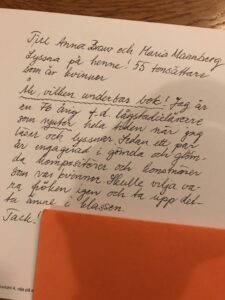 Till Anna Braw och Maria Mannberg
Lyssna på henne! 55 tonsättare
som är kvinnor
Åh, vilken underbar bok! Jag är
en 73 årig f.d. lågstadielärare
som nyter hela tiden när jag
läser och lyssnar. Sedan ett par
år engagerad i gömda och glöm-
da kompositörer och konstnärer
som var kvinnor. Skulle vilja va-
ra fröken igen och ta upp det-
ta ämne i klassen.
Tack!